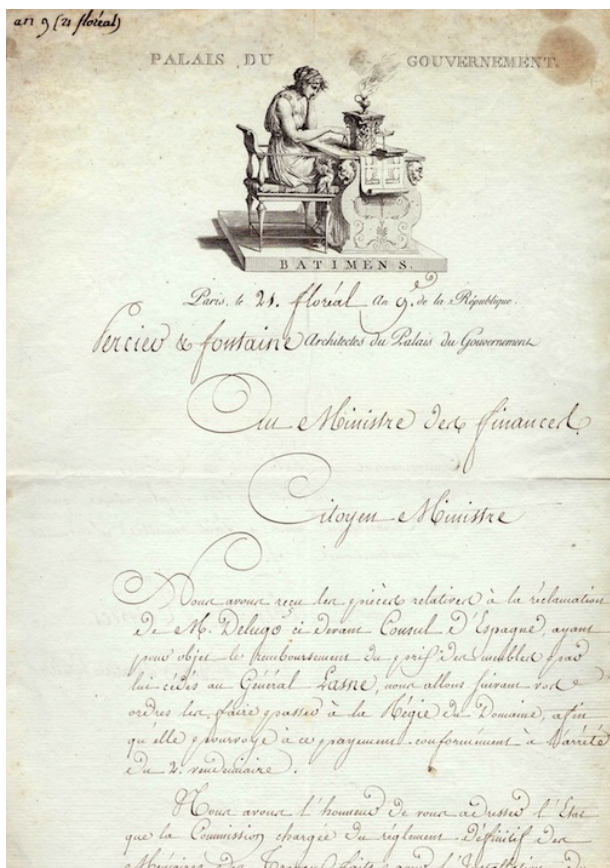 an 9 (21 floréal)
PALAIS DU GOUVERNEMENT.
BATIMENS.
Paris, le 21. floréal An 9.e de la République.
Percier & fontaine Architectes du Palais du Gouvernement
Au Ministre des finances.
Citoyen Ministre
Nous avons reçu les pièces relatives à la réclamation
de M. ci devant Consul d'Espagne, ayant
pour objet le remboursement du prix des meubles par
lui cédés au Général Lasne, nous allons suivant vos
ordres les faire passer à la Régie du Domaine, afin
qu'elle pourvoye à ce payement conformément à l'arrêté
du 2. vendémiaire.
Nous avons l'honneur de vous adresser l'Etat
que la Commission chargée du réglement définitif des
Mémoires des Travaux faits pour l'